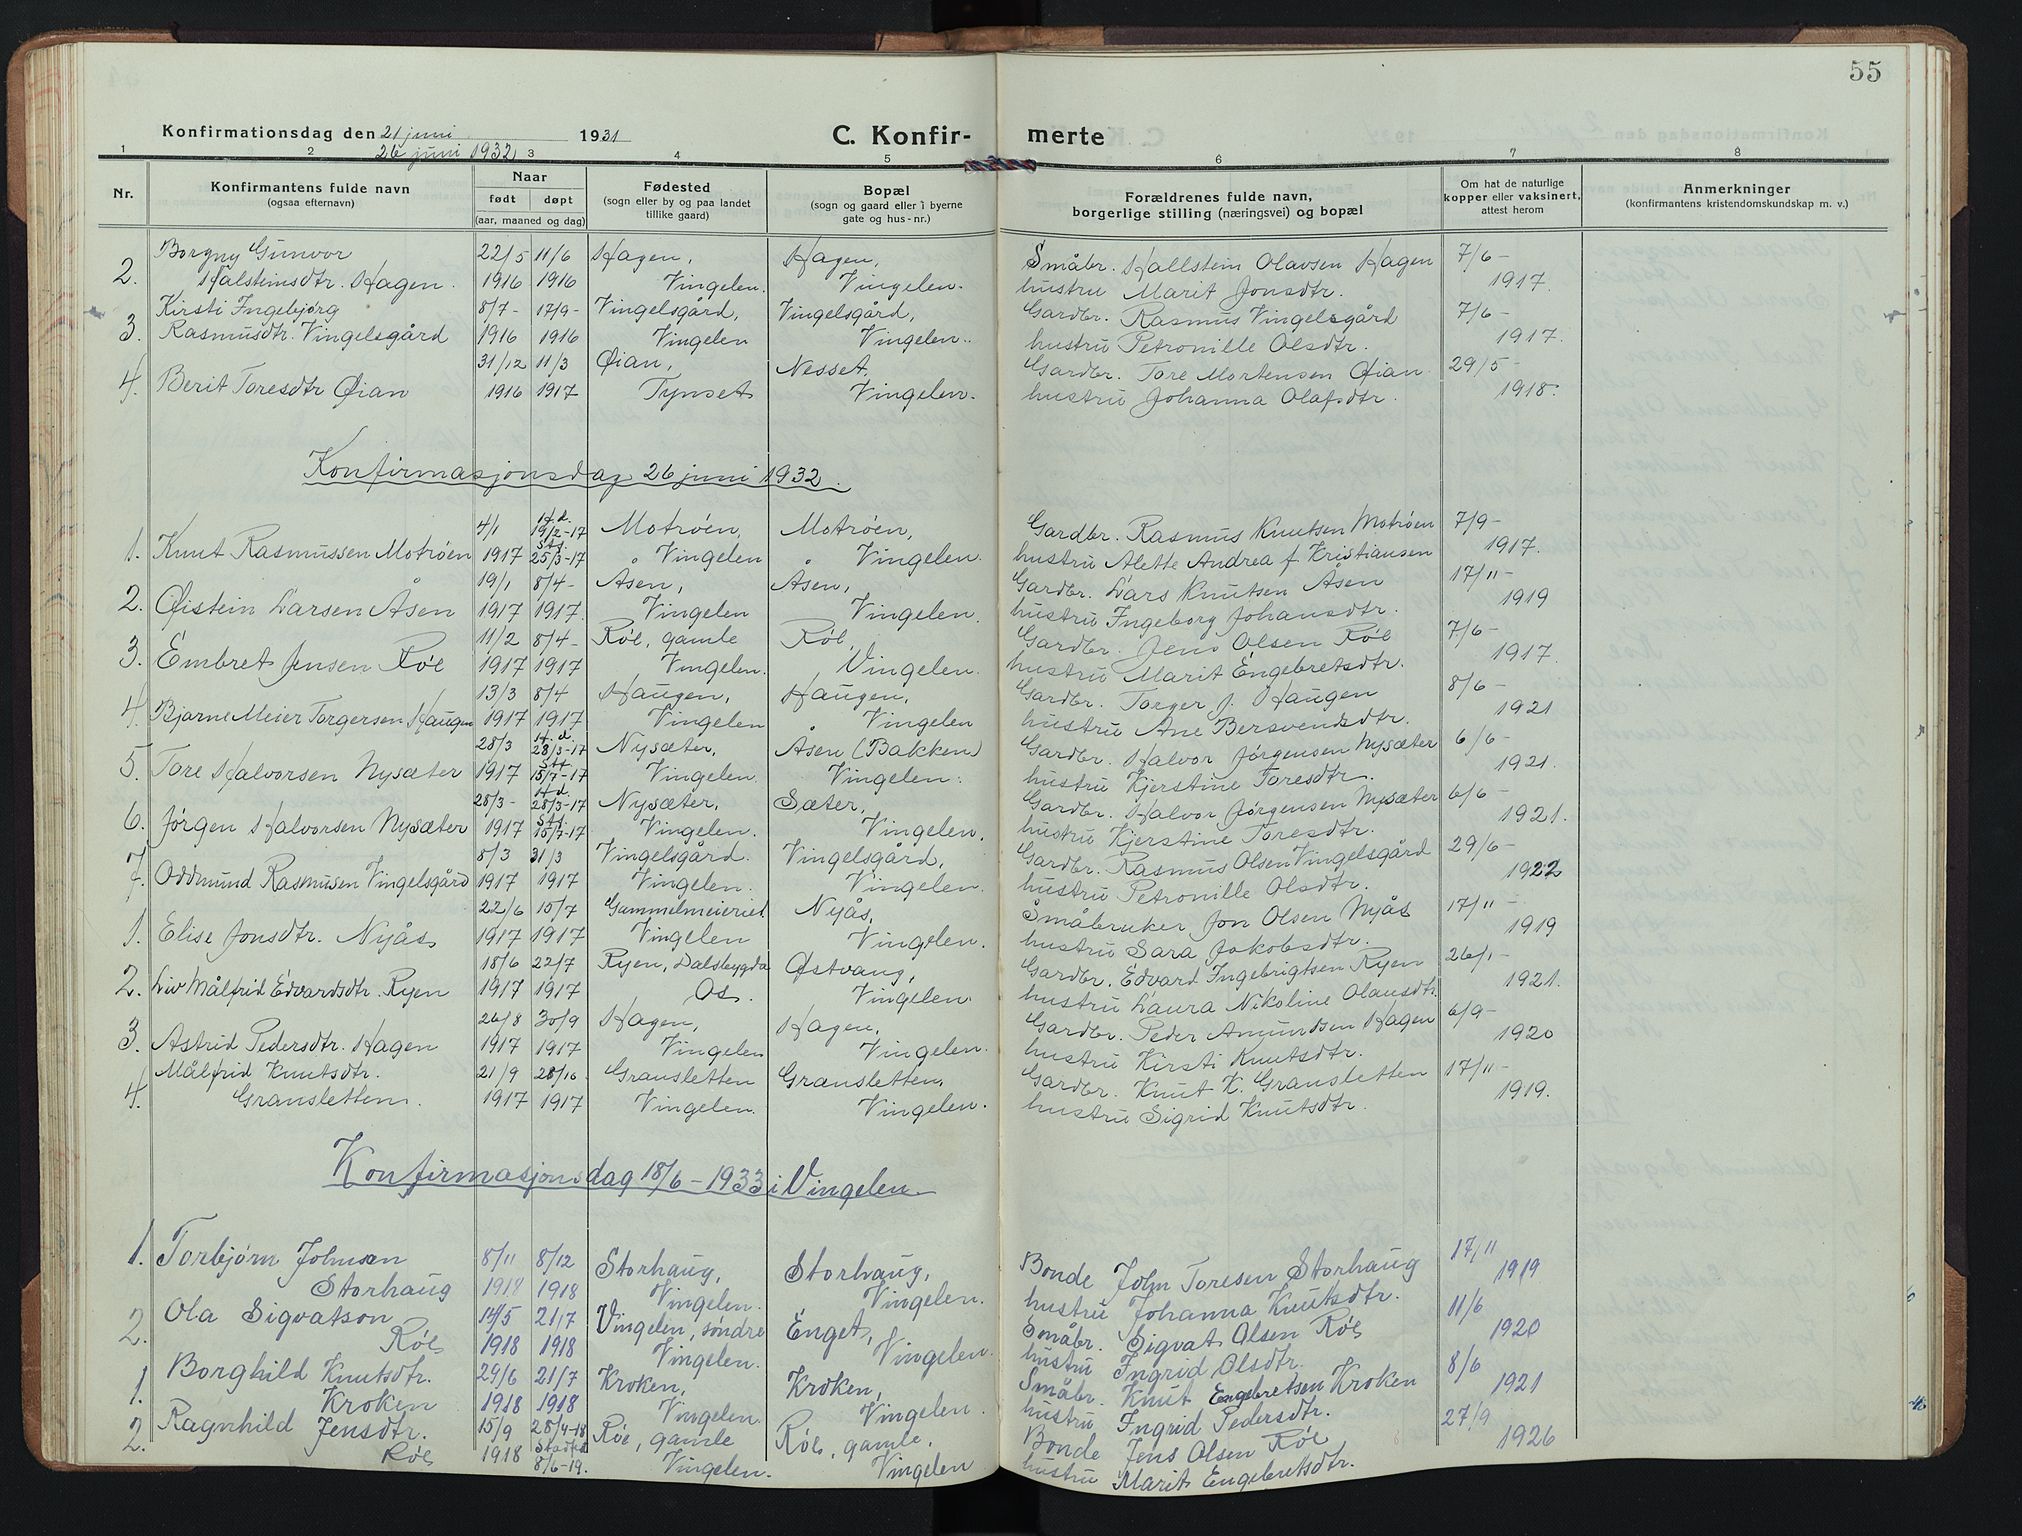 55
Konfirmationsdag den 21 juni 1931
26 juni 1932
C. Konfir- merte
1 2 3 4 5 6 7 8
Nr.
Konfirmantens fulde navn
(ogsaa efternavn)
Naar
født døpt
(aar, maaned og dag)
Fødested
(sogn eller by og paa landet
tillike gaard)
Bopæl
(sogn og gaard eller i byerne
gate og hus-nr.)
Forældrenes fulde navn,
borgerlige stilling (næringsvei) og bopæl
Om hat de naturlige
kopper eller vaksinert,
attest herom
Anmerkninger
(konfirmantens kristendomskundskap m. v.)
Borgny Gunvor 22/5 11/6 Hagen, Hagen, Småbr. Hallstein Olavsen Hagen 7/6-
2. Halsteinsdtr. Hagen. 1916 1916 Vingelen. Vingelen. hustru Marit Jonsdtr. 1917.
Kirsti Ingebjørg 8/7- 17/9- Vingelsgård, Vingelsgård, Gardbr. Rasmus Vingelsgård 7/6-
3. Rasmusdtr. Vingelsgård 1916 1916 Vingelen Vingelen.. hustru Petronille Olsdtr. 1917.
31/12 11/3 Øian, Nesset, Gardbr. Tore Mortensen Øian 29/5-
4. Berit Toresdtr Øian 1916 1917 Tynset Vingelen. hustru Johanna Olafsdtr. 1918.
Konfirmasjonsdag 26 juni 1932.
4/1 H.d. 19/2-17 Motrøen, Motrøen, Gardbr. Rasmus Knutsen Motrøen 7/9-
1. Knut Rasmussen Motrøen 1917 Stf. 25/3-17 Vingelen Vingelen. hustru Alette Andrea f. Kristiansen 1917.
19/1 8/4- Åsen, Åsen, Gardbr. Lars Knutsen Åsen 17/11-
2. Øistein Larsen Åsen 1917 1917. Vingelen Vingelen. hustru Ingeborg Johansdtr. 1919
11/2 8/4- Røe, gamle Røe, Gardbr. Jens Olsen Røe 7/6-
3. Embret Jensen Røe 1917 1917 Vingelen. Vingelen. hustru Marit Engebretsdtr. 1917.
13/3 8/4 Haugen, Haugen, Gardbr. Torger J. Haugen 8/6-
4. Bjarne Meier Torgersen Haugen 1917 1917 Vingelen Vingelen hustru Ane Bersvendsdtr. 1921
28/3 H.d. 28/3-17 Nysæter, Åsen (Bakken) Gardbr. Halvor Jørgensen Nysæter 6/6-
5. Tore Halvorsen Nysæter 1917 Stf. 15/7-17 Vingelen. Vingelen. hustru Kjerstine Toresdtr. 1921.
28/3- H.d. 28/3-17 Nysæter, Sæter, Gardbr. Halvor Jørgensen Nysæter 6/6-
6. Jørgen Halvorsen Nysæter 1917 Stf. 15/7-17 Vingelen. Vingelen. hustru Kjerstine Toresdtr. 1921.
8/3 31/3 Vingelsgård. Vingelsgård, Gardbr. Rasmus Olsen Vingelsgård 29/6-
7. Oddmund Rasmusen Vingelsgård 1917 1917 Vingelen. Vingelen. hustru Petronille Olsdtr. 1922
22/6 15/7 Gammelmeieriet Nyås, Småbruker Jon Olsen Nyås 17/11-
1. Elise Jonsdtr. Nyås 1917 1917 Vingelen Vingelen. hustru Sara Jakobsdtr. 1919
18/6 22/7 Ryen, Dalsbygda Østvang, Gardbr. Edvard Ingebrigtsen Ryen 26/1-
2. Liv Målfrid Edvardsdtr. Ryen 1917 1917 Os. Vingelen. hustru Laura Nikoline Olausdtr. 1921.
26/8 30/9 Hagen, Hagen, Gardbr. Peder Amundsen Hagen 6/9-
3. Astrid Pedersdtr. Hagen 1917 1917 Vingelen Vingelen. hustru Kirsti Knutsdtr. 1920
Målfrid Knutsdtr. 21/9 28/10 Gransletten Gransletten, Gardbr. Knut K. Gransletten 17/11-
4. Gransletten. 1917 1917 Vingelen. Vingelen. hustru Sigrid Knutsdtr. 1919.
Konfirmasjonsdag 18/6-1933 i Vingelen.
1. Torbjørn Johnsen 8/11 8/12 Storhaug, Storhaug, Bonde John Toresen Storhaug 17/11
Storhaug 1918 1918 Vingelen. Vingelen. hustru Johanna Knutsdtr. 1919
2. Ola Sigvatson 14/5 21/7 Vingelen, søndre Enget, Småbr. Sigvat Olsen Røe 11/6
Røe 1918 1918 Vingelen. Vingelen. hustru Ingrid Olsdtr. 1920
1. Borghild Knutsdtr. 29/6 21/7 Kroken, Kroken, Småbr. Knut Engebretsen Kroken 8/6
Kroken 1918 1918 Vingelen. Vingelen. hustru Ingrid Pedersdtr. 1921
2. Ragnhild Jensdtr. 15/9 28/4-18 Røe, gamle Røe, gamle, Bonde Jens Olsen Røe 27/9
Røe 1918 Stadfst 8/6-19. Vingelen. Vingelen hustru Marit Engebretsdtr. 1926